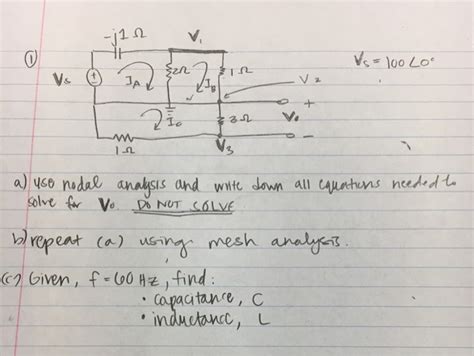 -j1 Ω
V₁
①
Vs = 100∠0°
2Ω
1Ω
Vs
+
I_A
I_B
V2
+
I_C
3Ω
Vo
-
1Ω
V3
a) use nodal analysis and write down all equations needed to
solve for Vo. DO NOT SOLVE.
b) repeat (a) using mesh analysis.
(c) Given, f = 60 Hz, find:
• capacitance, C
• inductance, L